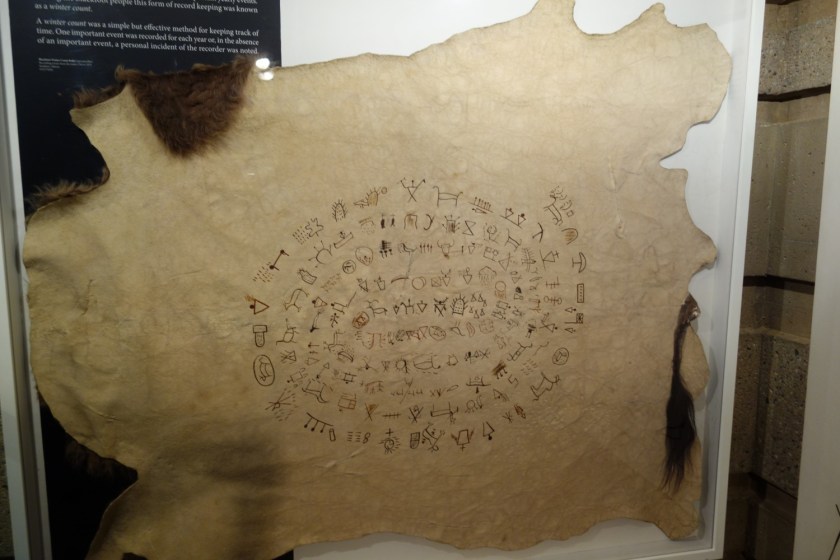 people this form of record keeping was known
as a winter count.
A winter count was a simple but effective method for keeping track of
time. One important event was recorded for each year or, in the absence
of an important event, a personal incident of the recorder was noted.